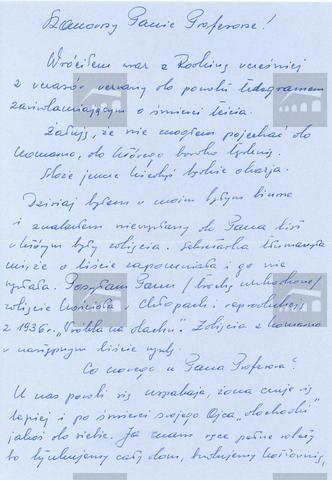 Szanowny Panie Profesorze!
Wróciłem wraz z Rodziną wcześniej
z wczasów wezwany do powrotu telegramem
zawiadamiającym o śmierci teścia.
Żałuję, że nie mogłem pojechać do
Łomano, do którego bardzo tęsknię.
Może jeszcze kiedyś będzie okazja.
Dzisiaj byłem w moim byłym biurze
i znalazłem niewysłany do Pana list
w którym były zdjęcia. Sekretarka tłumaczyła
mi, że o liście zapomniała i go nie
wysłała. Posyłam Panu /trochę uszkodzone/
zdjęcie kościoła w Chłopach i reprodukcję
z 1936 r. "na dachu". Zdjęcia z Łomano
w następnym liście wyślę.
Co nowego u Pana Profesora?
U nas powoli się uspakaja, żona czuje się
lepiej i po śmierci swojego Ojca "dochodzi"
jakoś do siebie. Ja mam ręce pełne roboty
bo tynkujemy cały dom,